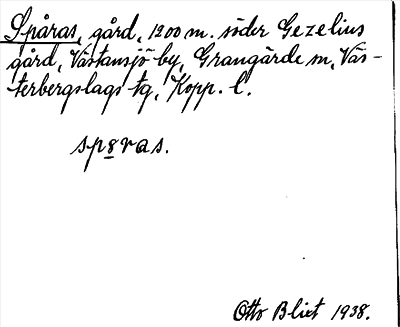 Spåras, gård, 1200 m. söder Gezelius
gård, Västansjö by, Grangärde sn, Väs-
terbergslags tg, Kopp. l.
spəras.
Otto Blixt 1938.